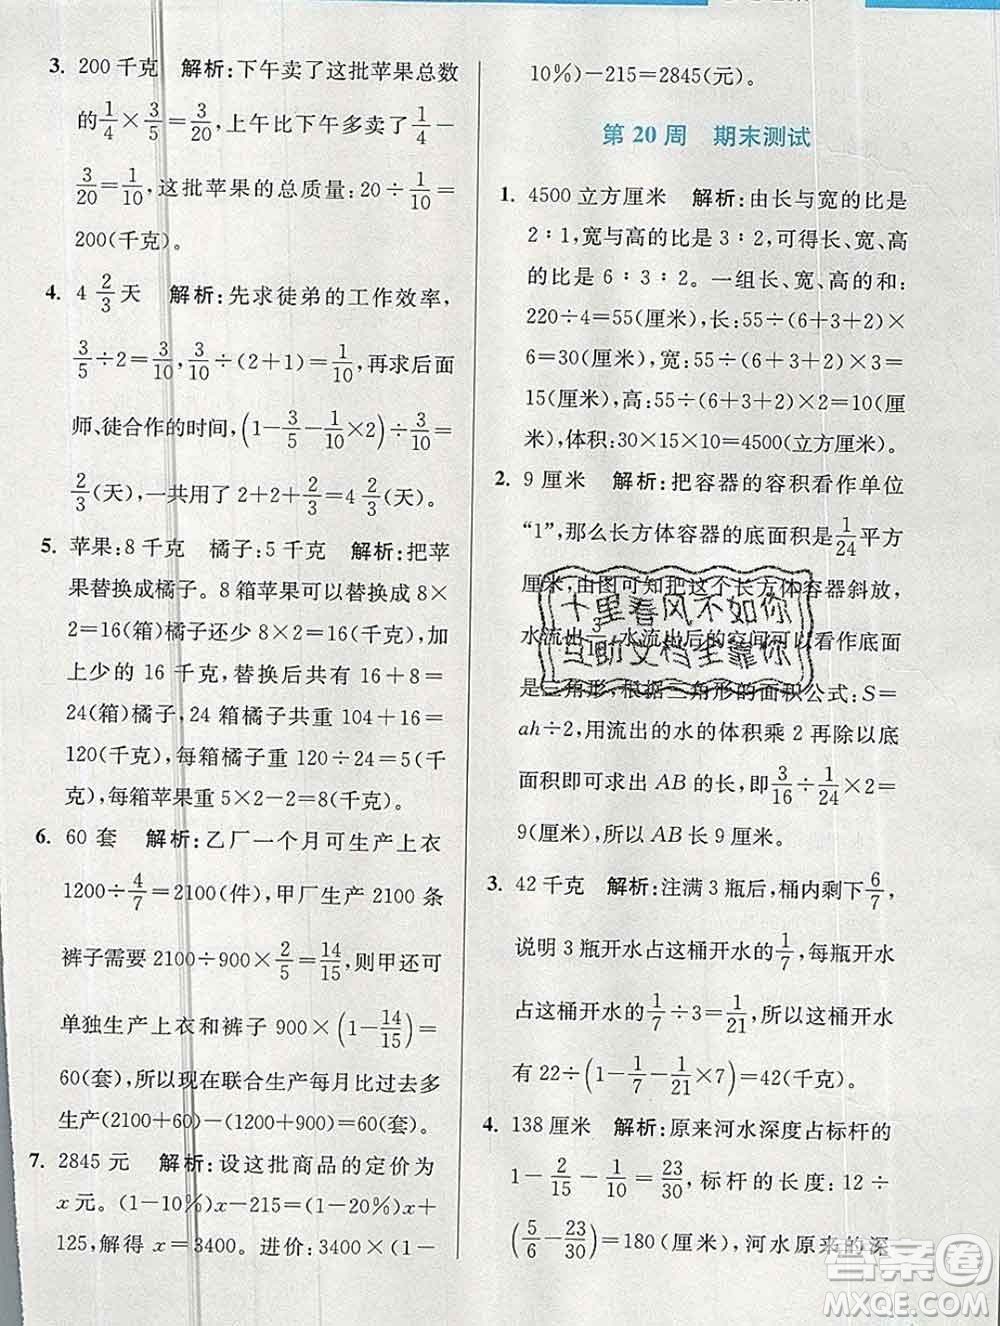 3. 200千克 解析:下午卖了这批苹果总数
的1/4×3/5=3/20,上午比下午多卖了1/4−
3/20=1/10,这批苹果的总质量:20÷1/10=
200(千克)。
4. 4 2/3天 解析:先求徒弟的工作效率,
3/5÷2=3/10,3/10÷(2+1)=1/10,再求后面
师、徒合作的时间,(1−3/5−1/10×2)÷3/10=
2/3(天),一共用了2+2+2/3=4 2/3(天)。
5. 苹果:8千克 橘子:5千克 解析:把苹
果替换成橘子。8箱苹果可以替换成8×
2=16(箱)橘子还少8×2=16(千克),
加上少的16千克,替换后共16+8=
24(箱)橘子,24箱橘子共重104+16=
120(千克),每箱橘子重120÷24=5(千
克),每箱苹果重5×2−2=8(千克)。
6. 60套 解析:乙厂一个月可生产上衣
1200÷4/7=2100(件),甲厂生产2100条
裤子需要2100÷900×2/5=14/15,则甲还可
单独生产上衣和裤子900×(1−14/15)=
60(套),所以现在联合生产每月比过去多
生产(2100+60)−(1200+900)=60(套)。
7. 2845元 解析:设这批商品的定价为
x元。(1−10%)x−215=(1−20%)x+
125,解得x=3400。进价:3400×(1−
10%)−215=2845(元)。
第20周 期末测试
1. 4500立方厘米 解析:由长与宽的比是
2∶1,宽与高的比是3∶2,可得长、宽、高
的比是6∶3∶2。一组长、宽、高的和是:
220÷4=55(厘米),长:55÷(6+3+2)×
6=30(厘米),宽:55÷(6+3+2)×3=
15(厘米),高:55÷(6+3+2)×2=10(厘
米),体积:30×15×10=4500(立方厘米)。
2. 9厘米 解析:把容器的容积看作单位
“1”,那么长方体容器的底面积是1/24平方
厘米,由图可知把这个长方体容器斜放,
水流出3/1,水流出后的空间可以看作底面
是三角形,根据三角形的面积公式:S=
ah÷2,用流出的水的体积乘2再除以底
面积即可求出AB的长,即3/16÷1/24×2=
9(厘米),所以AB长9厘米。
3. 42千克 解析:注满3瓶后,桶内剩下6/7,
说明3瓶开水占这桶开水的1/7,每瓶开水
占这桶开水的1/7÷3=1/21,所以这桶开水
有22÷(1−1/7−1/21×7)=42(千克)。
4. 138厘米 解析:原来河水深度占标杆的
1−2/15−1/10=23/30,标杆的长度:12÷
(5/6−23/30)=180(厘米),河水原来的深
十里春风不如你
互助文档坐靠你
答案圈
MXQE.COM